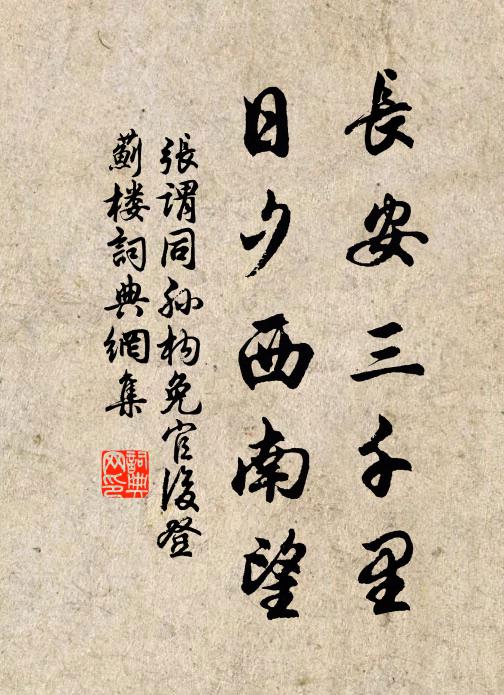 長安三千里
日夕西南望
張謂同孫構免官後登
薊楼詞典網集
詞典
网印